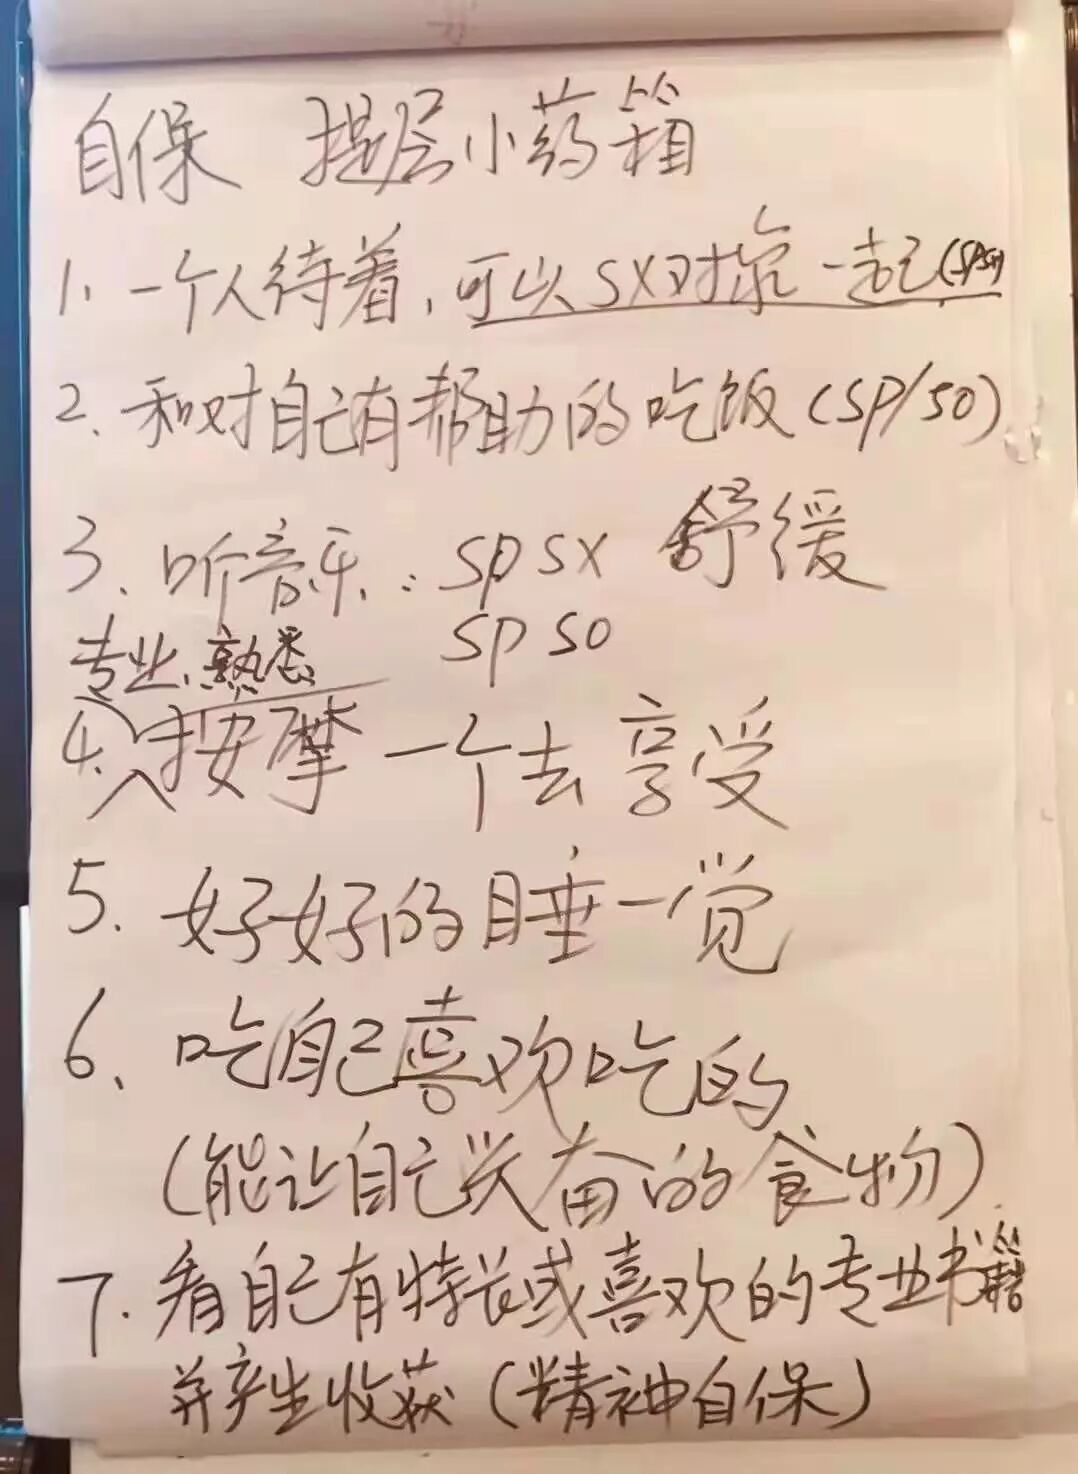 自保 提层小药箱
1. 一个人待着,可以SX对象一起(spsx)
2. 和对自己有帮助的吃饭(SP/SO)
3. 听音乐.: sp sx 舒缓
sp so
专业、熟悉
4. 按摩一个去享受
5. 好好的睡一觉
6、吃自己喜欢吃的
(能让自己兴奋的食物)
7. 看自己有特长或喜欢的专业书籍
并产生收获(精神自保)